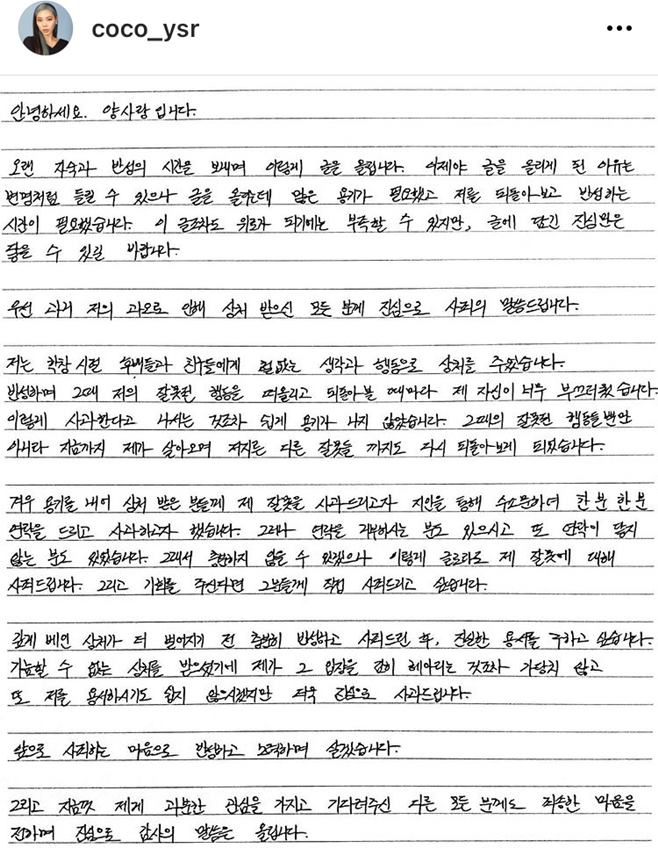 coco_ysr
안녕하세요. 양사랑 입니다.
오랜 자숙과 반성의 시간을 보내며 이렇게 글을 올립니다. 이제야 글을 올리게 된 이유는
변명처럼 들릴 수 있으나 글을 올리는데 많은 용기가 필요했고 저를 되돌아보고 반성하는
시간이 필요했습니다. 이 글조차도 위로가 되기에는 부족할 수 있지만, 글에 담긴 진심만은
닿을 수 있길 바랍니다.
우선 과거 저의 과오로 인해 상처 받으신 모든 분께 진심으로 사죄의 말씀드립니다.
저는 학창시절 후배들과 친구들에게 철없는 생각과 행동으로 상처를 주었습니다.
반성하며 그때 저의 잘못된 행동을 떠올리고 되돌아볼 때마다 제 자신이 너무 부끄러웠습니다.
이렇게 사과한다고 나서는 것조차 쉽게 용기가 나지 않았습니다. 그때의 잘못된 행동들뿐만
아니라 지금까지 제가 살아오며 저지른 다른 잘못들 까지도 다시 되돌아보게 되었습니다.
겨우 용기를 내어 상처 받은 분들께 제 잘못을 사과드리고자 지인을 통해 수소문하여 한분 한분
연락을 드리고 사과하고자 했습니다. 그러나 연락을 거부하시는 분도 있으시고 또 연락이 닿지
않는 분도 있었습니다. 그래서 충분하지 않을 수 있겠으나 이렇게 글로라도 제 잘못에 대해
사죄드립니다. 그리고 기회를 주신다면 그분들께 직접 사죄드리고 싶습니다.
깊게 베인 상처가 더 벌어지기 전 충분히 반성하고 사죄드린 후, 진실한 용서를 구하고 싶습니다.
가늠할 수 없는 상처를 받으셨기에 제가 그 입장을 감히 헤아리는 것조차 가당치 않고
또 저를 용서하시기도 쉽지 않으시겠지만 더욱 진심으로 사과드립니다.
앞으로 사죄하는 마음으로 반성하고 노력하며 살겠습니다.
그리고 지금껏 제게 과분한 관심을 가지고 기다려주신 다른 모든 분께도 죄송한 마음을
전하며 진심으로 감사의 말씀을 올립니다.